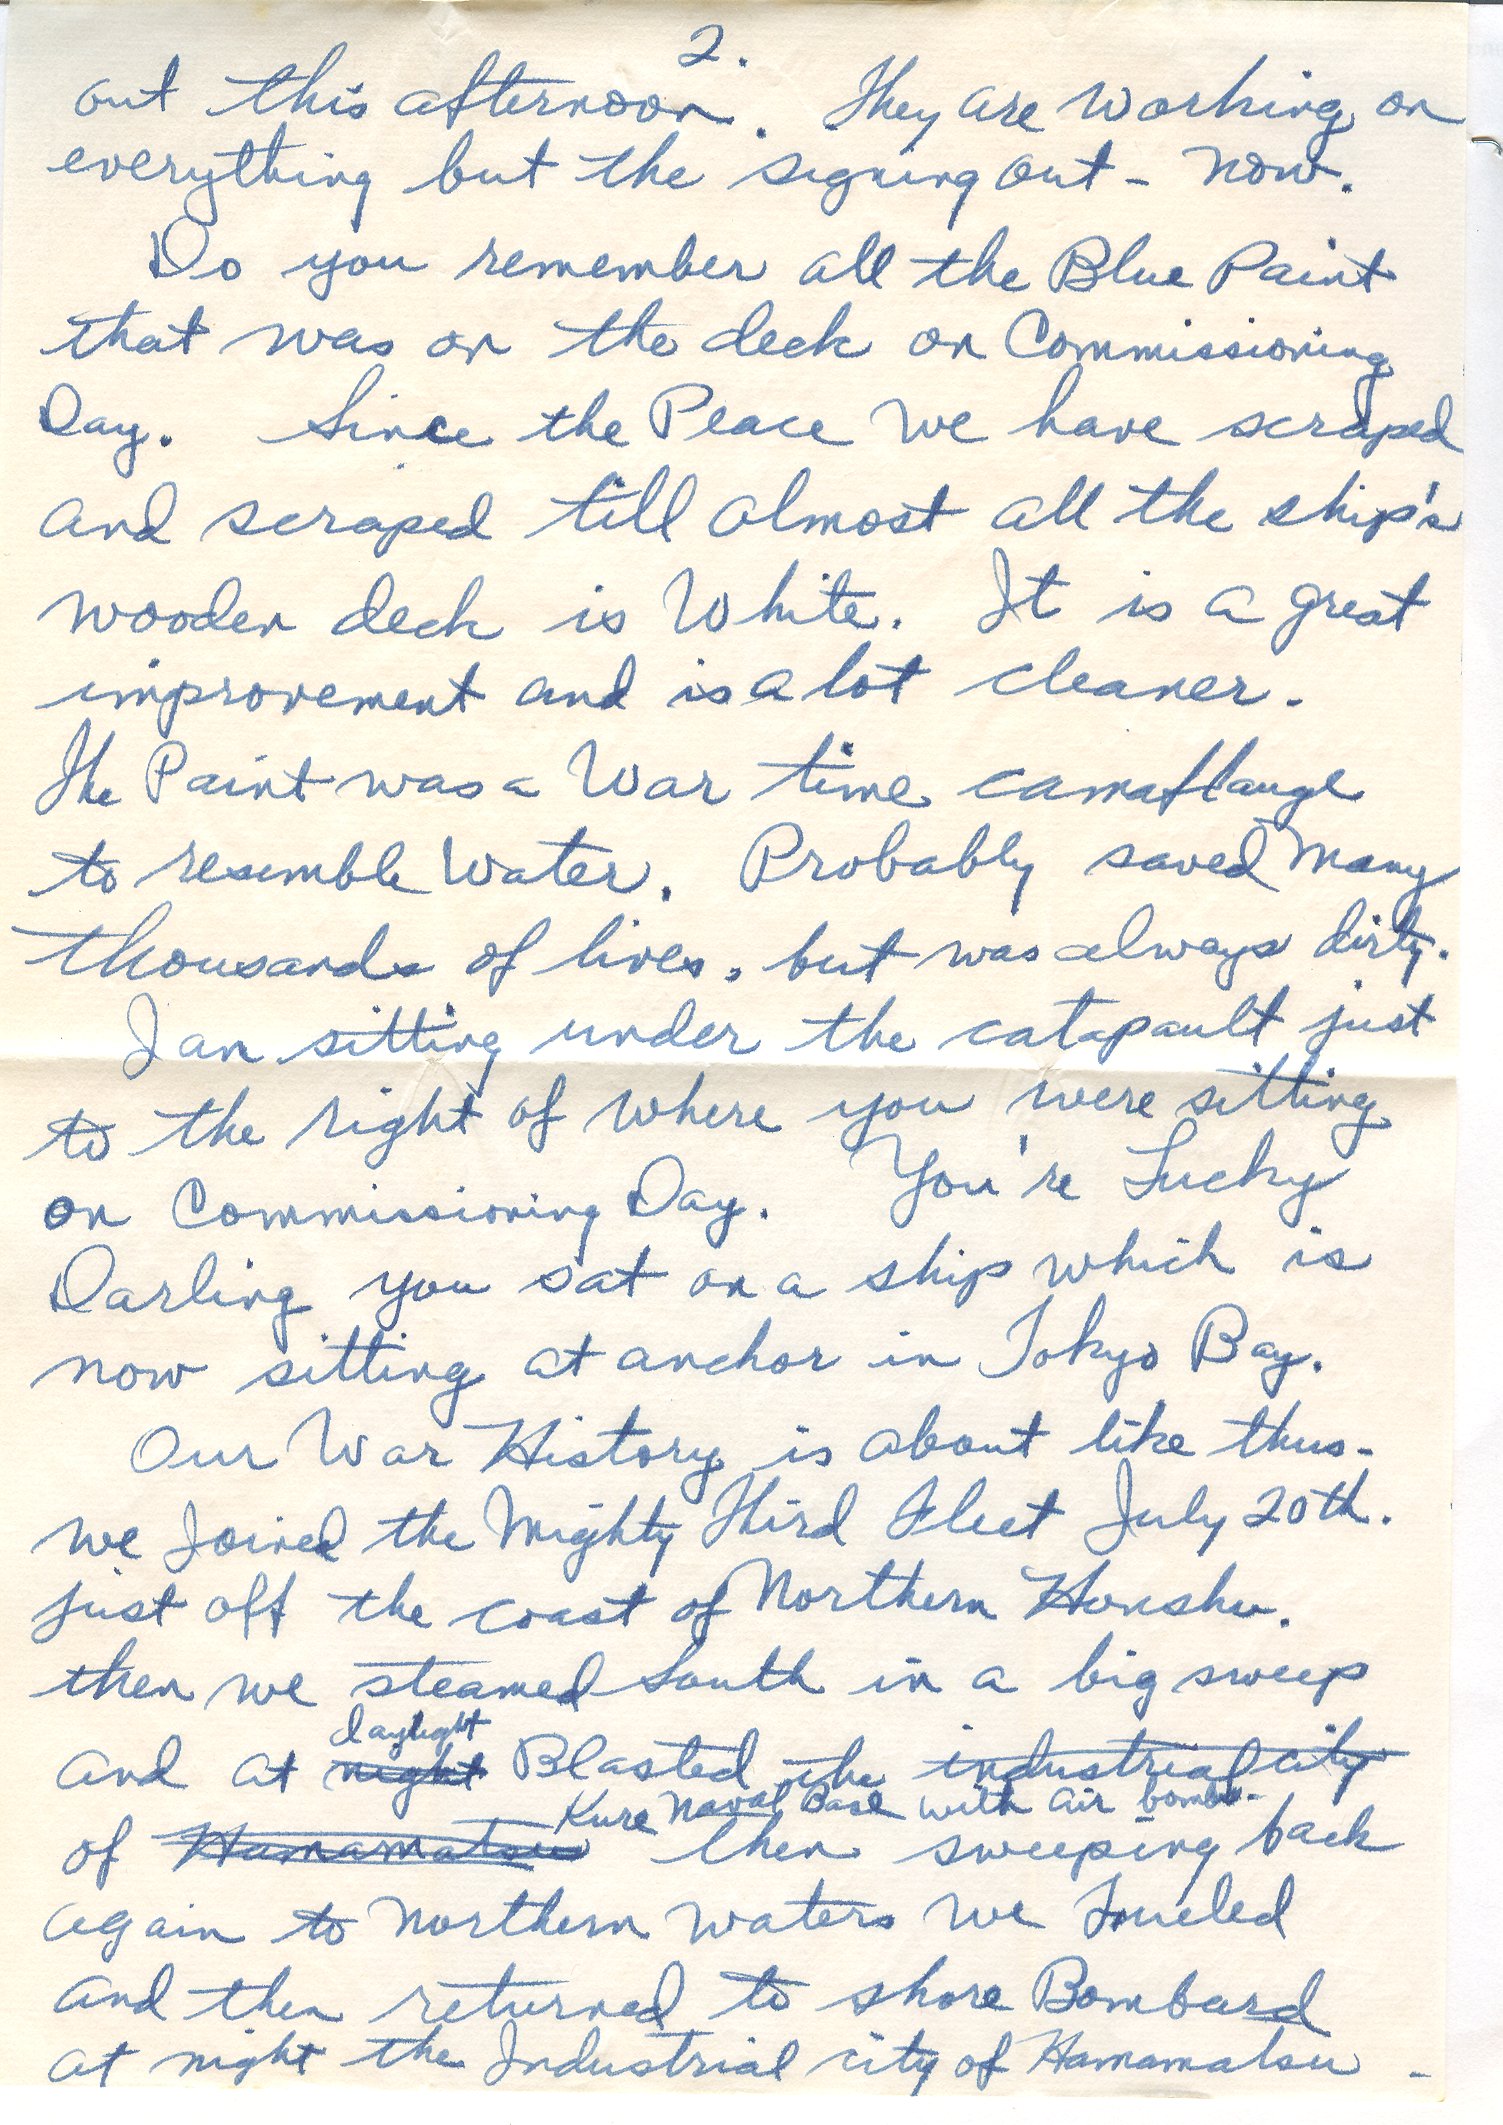 2.
out this afternoon. They are working on
everything but the signing out - now.
Do you remember all the Blue Paint
that was on the deck on Commissioning
Day. Since the Peace we have scraped
and scraped till almost all the ship's
wooden deck is White. It is a great
improvement and is a lot cleaner.
The Paint was a War time camaflauge
to resemble Water. Probably saved many
thousands of lives, but was always dirty.
I am sitting under the catapault just
to the right of where you were sitting
on Commissioning Day. You're Lucky
Darling you sat on a ship which is
now sitting at anchor in Tokyo Bay.
Our War History is about like thus-
we joined the Mighty Third Fleet July 20th.
just off the coast of Northern Honshu.
then we steamed South in a big sweep
daylight
and at night Blasted the industrial city
Kure Naval Base with air bombs-
of Hamamatsu then sweeping back
again to Northern waters we fueled
and then returned to shore Bombard
at night the Industrial city of Hamamatsu -